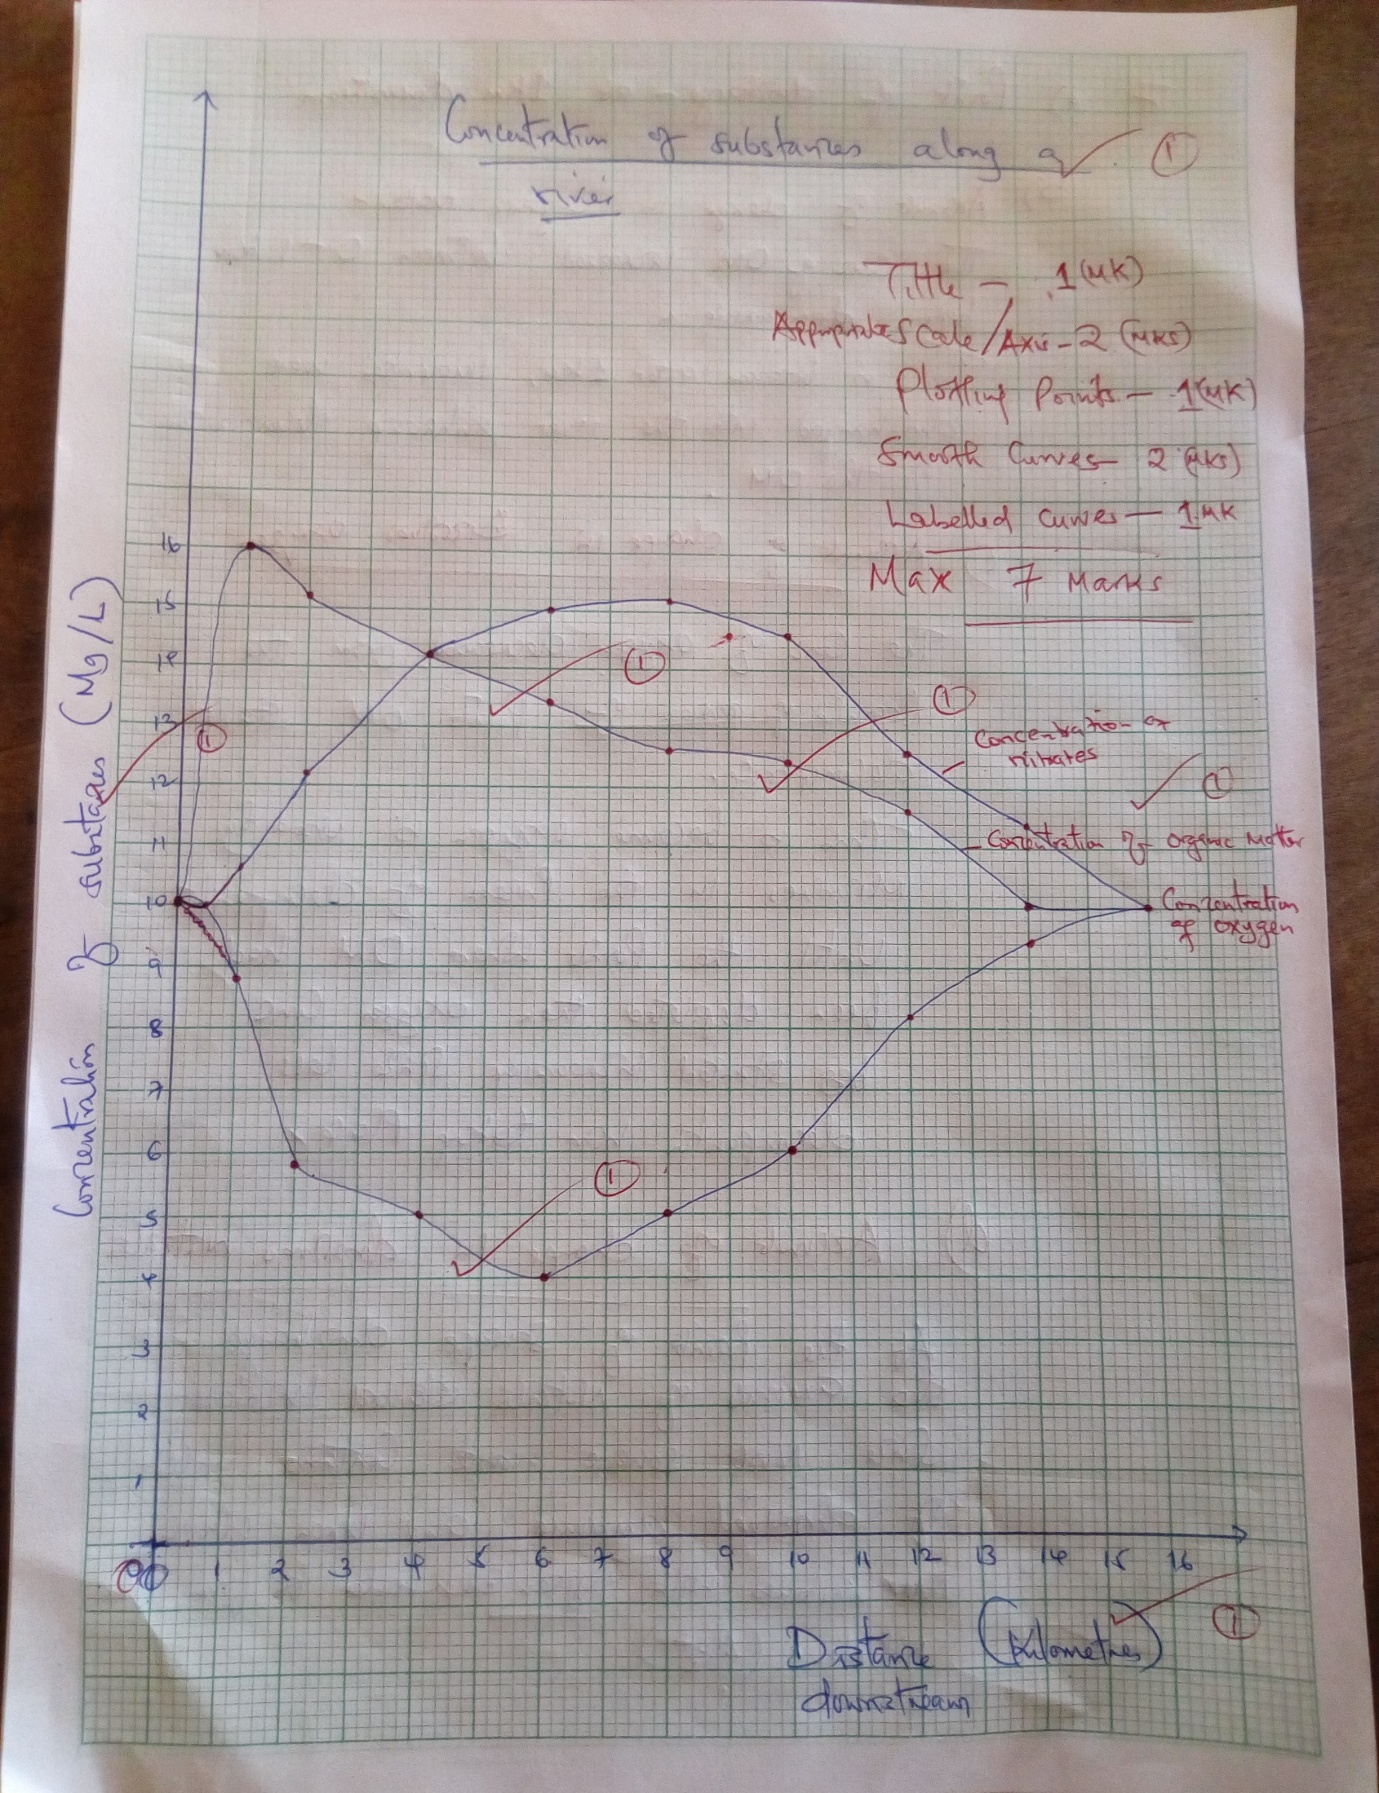 Concentration of substances along a
river
1
Tittle - 1 (MK)
Appropriate Scale/Axis - 2 (MKS)
Plotting Points - 1 (MK)
Smooth Curves - 2 (MKS)
Labelled curves - 1 MK
Max 7 Marks
Concentration of substances (Mg/L)
16
15
14
13
12
11
10
9
8
7
6
5
4
3
2
1
1
1
1
1
Concentration of
nitrates
1
Concentration of organic Matter
Concentration
of oxygen
1
0 1 2 3 4 5 6 7 8 9 10 11 12 13 14 15 16
Distance (Kilometres)
downstream
1